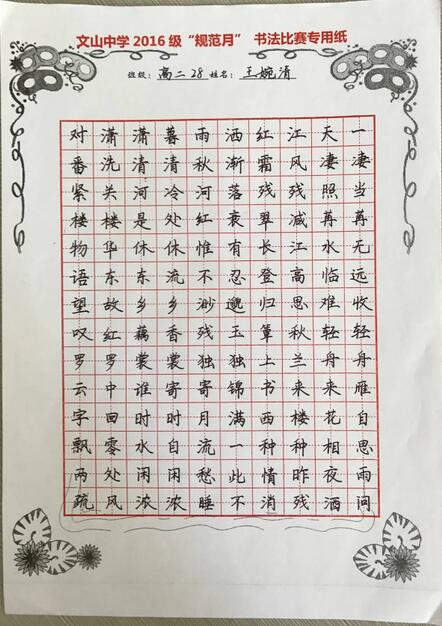 文山中学2016级“规范月” 书法比赛专用纸
班级：高二28 姓名：王婉清
对潇潇暮雨洒红江天一
番洗清清秋渐霜风凄凄
紧关河冷河落残残照当
楼楼是处红衰翠减苒苒
物华休休惟有长江水无
语东东流不忍登高临远
望故乡乡渺邈归思难收
叹红藕香残玉簟秋轻轻
罗罗裳裳独独上兰舟舟
云中谁寄寄锦书来来雁
字回时时月满西楼花自
飘零水自流一种种相思
两处闲闲愁此情昨夜雨
疏风浓浓睡不消残酒问